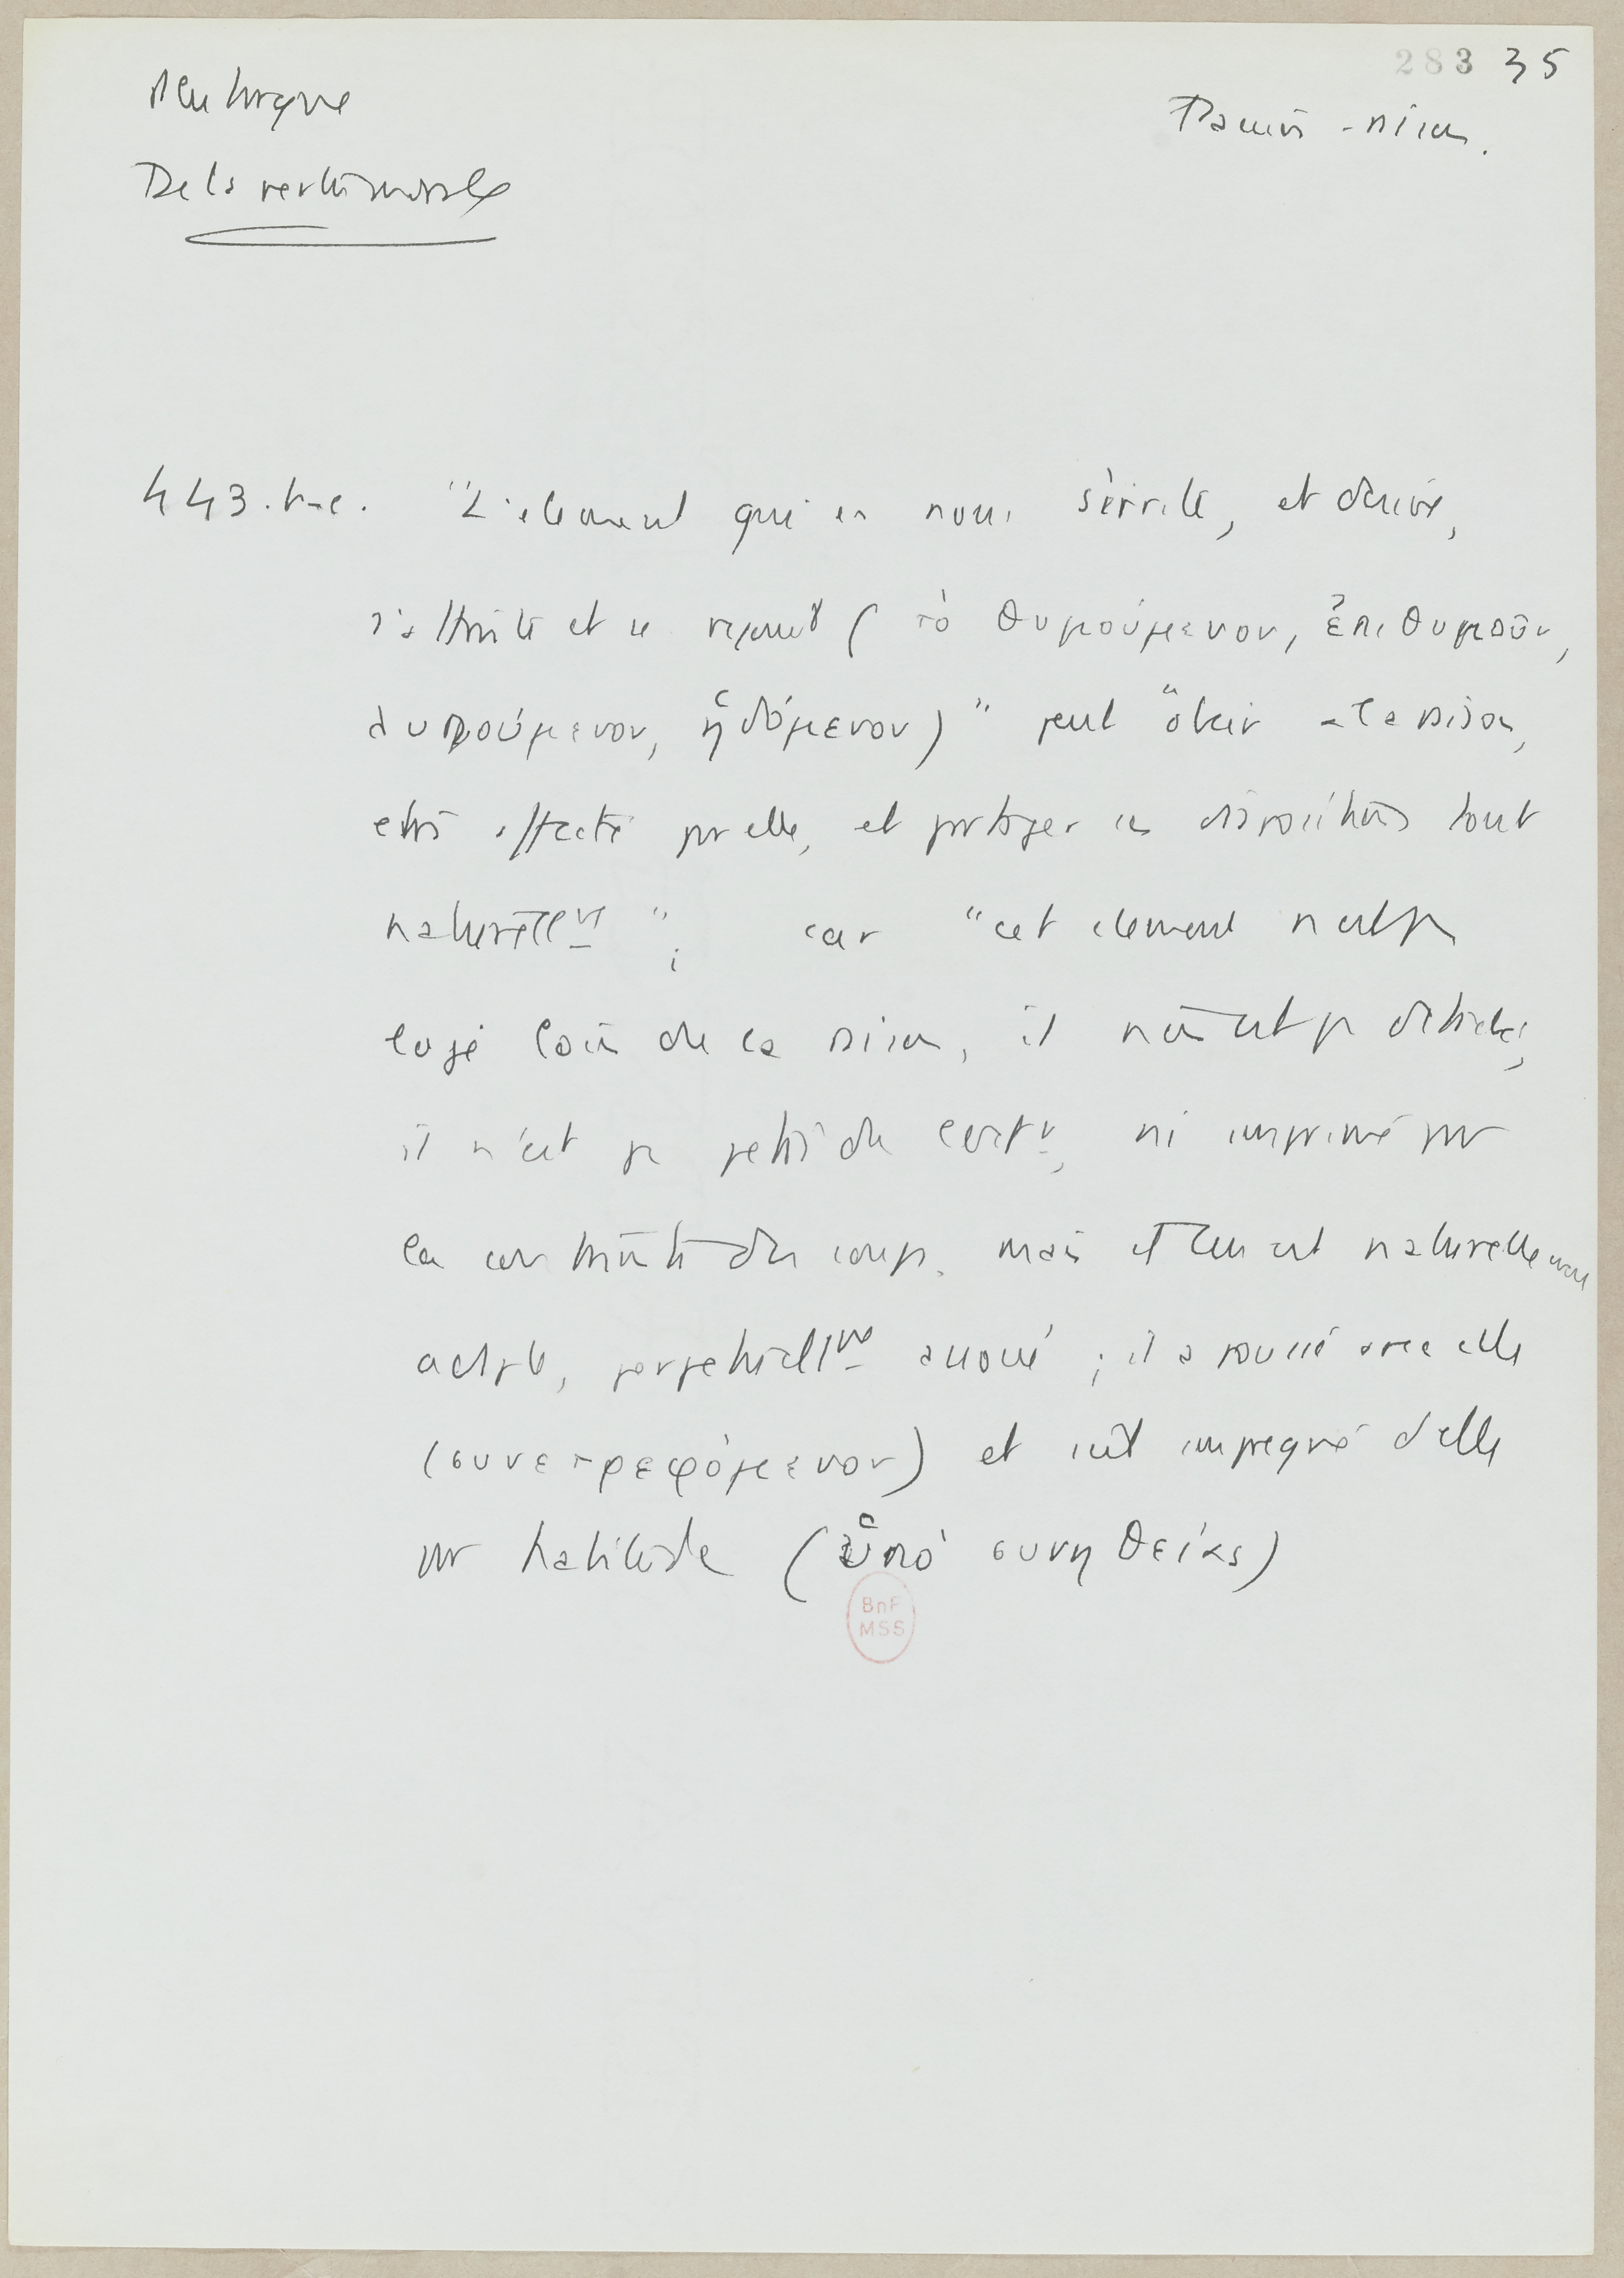 283 35
Plutarque
Passion - raison.
De la vertu morale
443.b-c. "L'élément qui en nous s'irrite, et désire,
s'attriste et se réjouit (τὸ θυμούμενον, ἐπιθυμοῦν,
λυπούμενον, ἡδόμενον)" peut "obéir à la raison,
être affecté par elle, et partager ses dispositions tout
naturellemt"; car "cet élément n'est pas
logé loin de la raison, il n'en est pas détaché,
il n'est pas pétri de l'extr, ni imprimé par
la contrainte des coups. mais il lui est naturellement
adapté, perpétuellmt associé ; il a poussé avec elle
(συνετρεφόμενον) et s'est imprégné d'elle
par habitude (ὑπὸ συνηθείας)
BnF
MSS